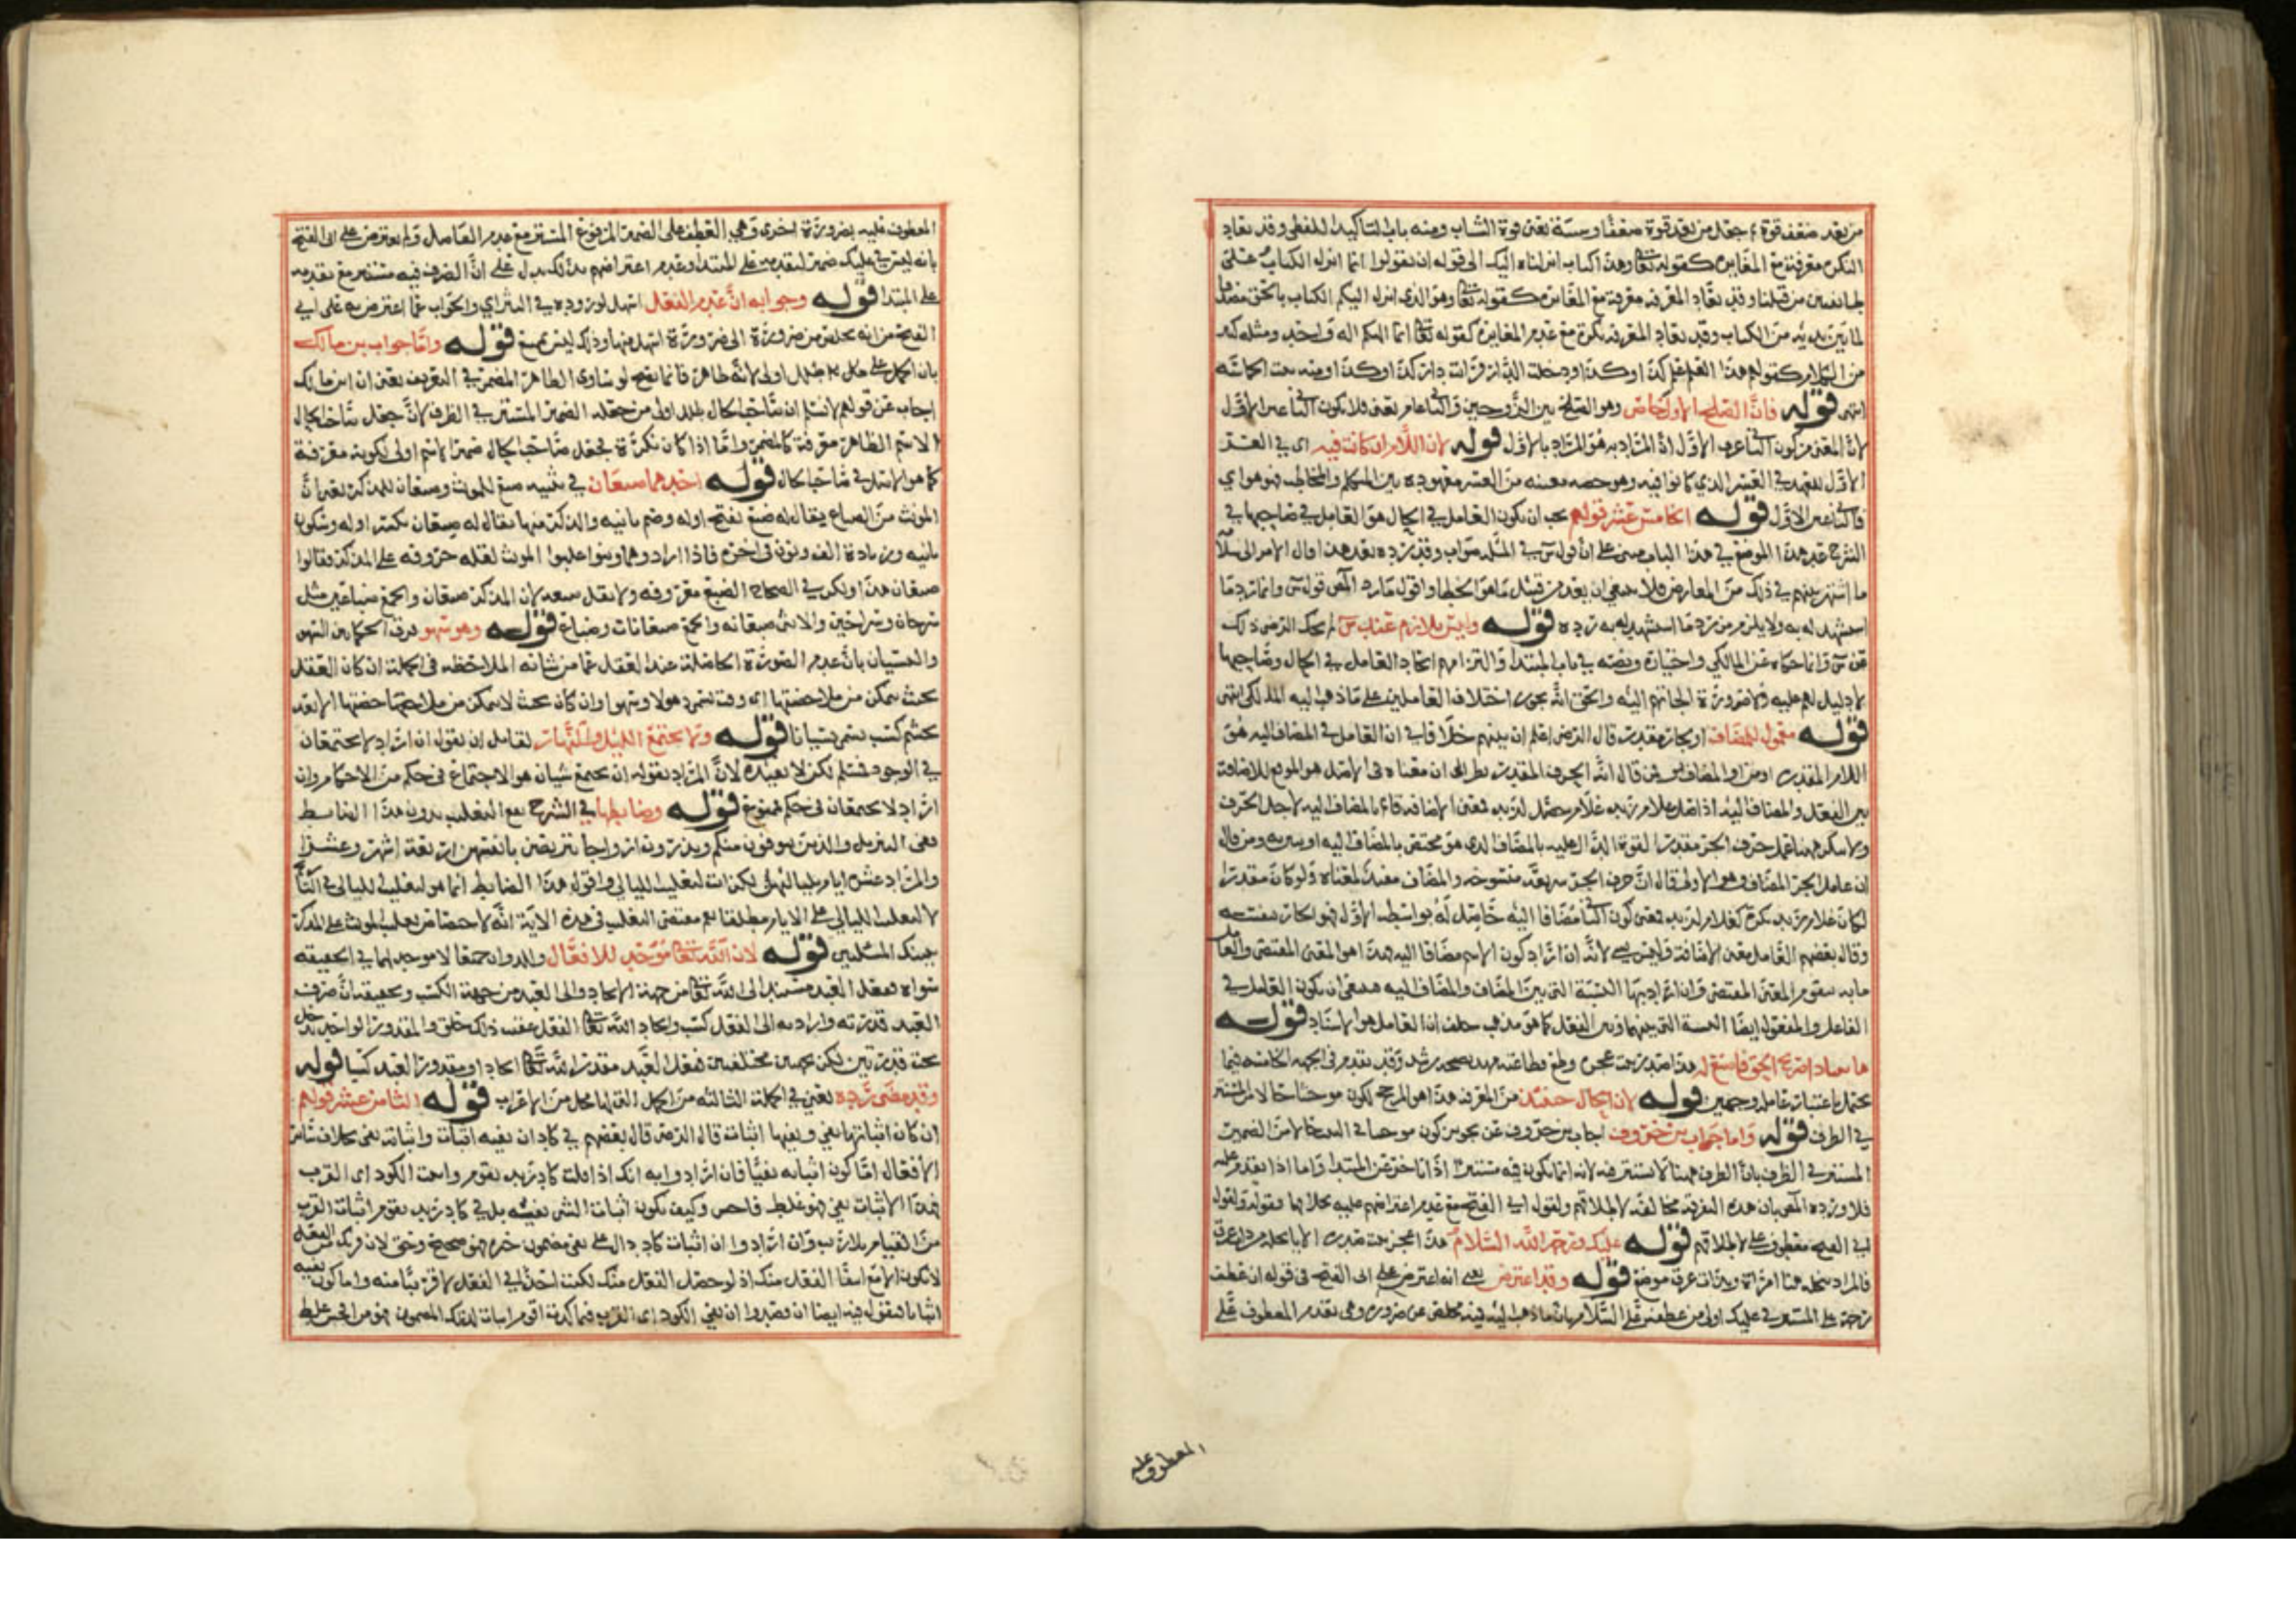 من بعد ضعف قوة ثم جعل من بعد قوة ضعفا وشيبة يعنى قوة الشباب ومنه باب التاكيد اللفظى وقد تعاد
النكرة معرفة مع المغايرة كقوله تعالى وهذا كتاب انزلناه اليك الى قوله ان تقولوا انما انزل الكتاب على
طائفتين من قبلنا وقد تعاد المعرفة معرفة مع المغايرة كقوله تعالى وهو الذى انزل اليكم الكتاب بالحق مصدقا
لما بين يديه من الكتاب وقد تعاد المعرفة نكرة مع عدم المغايرة كقوله تعالى انما الهكم اله واحد ومثله كثير
من الكلام كقولهم هذا العلم علم كذا وكذا ودخلت الدار فرأيت دار كذا وكذا ومنه بيت الحماسة
انتهى قوله فان الصلح الاول خاص وهو الصلح بين الزوجين والثانى عام يعنى فلا يكون الثانى عين الاول
لان المعنى من كون الثانى عين الاول ان المراد به هو المراد بالاول قوله لان اللام ان كانت فيه اى فى العسر
الاول للعهد فى العسر الذي كانوا فيه وهو حصه معينه من العسر معهوده بين المتكلم والمخاطب فهو هو اى
فالثانى عين الاول قوله الخامس عشر قولهم يجب ان يكون العامل فى الحال هو العامل فى صاحبها فى
الشرح عد هذا الموضع فى هذا الباب مبنى على ان قول س فى المسئله صواب وقد رده بعد هذا وآل الامر الى
ما اشتهر بينهم فى ذلك من المعارض فلا ينبغى ان يعد من قبيل ما هو الخطا واقول ما رد المص قول س وانما رد ما
استشهد له به ولا يلزم من رد ما استشهد له به رده قوله وليس بلازم عند س لم يحك الرضى ذلك
عن س وانما حكاه عن المالكي واختياره ونصه فى باب المبتدا والتزامهم اتحاد العامل فى الحال وصاحبها
لا دليل لهم عليه ولا ضرورة الجأتهم اليه والحق انه يجوز اختلاف العاملين على ما ذهب اليه المالكى انتهى
قوله معمول للمضاف او لجار مقدر قال الرضى اعلم ان بينهم خلافا فى ان العامل فى المضاف اليه هو
اللام المقدر او من او المضاف فمن قال انه الحرف المقدر نظر الى ان معناه فى الاصل هو الموقع للاضافة
بين الفعل والمضاف اليه اذ اصل غلام زيد غلام حصل لزيد فمعنى الاضافة قائم بالمضاف اليه لاجل الحرف
ولا ينكر ههنا عمل حرف الجر مقدرا لقوة الدال عليه بالمضاف الذى هو مختص بالمضاف اليه او يبينه ومن قال
ان عامل الجر المضاف وهو الاولى قال ان حرف الجر شريعة منسوخه والمضاف مفيد لمعناه ولو كان مقدرا
لكان غلام زيد نكرة كغلام لزيد فمعنى كون الثانى مضافا اليه حاصل له بواسطه الاول فهو الجار بنفسه
وقال بعضهم العامل معنى الاضافة وليس بشى لانه ان اراد كون الاسم مضافا اليه فهذا هو المعنى المقتضى والعامل
ما به يتقوم المعنى المقتضى وان اراد بها النسبة التى بين المضاف والمضاف اليه فينبغى ان يكون العامل فى
الفاعل والمفعول ايضا النسبة التى بينهما وبين الفعل كما هو مذهب خلف ان العامل هو الاسناد قوله
ها بينا ذا صريح الحق فاصغ له هذا صدر بيت عجزه وطع فطاعة مهد نصحه رشد وقد تقدم فى الجهه الخامسه فيما
يحتمل باعتبار عامله وجهين قوله لان الحال حينئذ من المعرفه هذا هو المرجح لكون موحشا حالا من المستتر
فى الظرف قوله واما جواب بن خروف اجاب بن خروف عن تجويز كون موحشا فى البيت حالا من الضمير
المستتر فى الظرف بان الظرف ههنا لا يستتر فيه لانه انما يكون فيه مستترا اذا تاخر عن المبتدا واما اذا تقدم عليه
فلا ورده المص بان هذه التفرقه مخالفه لاطلاقهم ولقول ابى الفتح مع عدم اعتراضهم عليه بخلافها وقوله ولقول
ابى الفتح معطوف على لاطلاقهم قوله عليك ورحمة الله السلام هذا عجز بيت صدره الا يا نخلة من ذات عرق
فالمراد بنخله هنا امراة وذات عرق موضع قوله وقد اعترض يعنى انه اعترض على ابى الفتح فى قوله ان عطف
رحمة على المستتر فى عليك اولى من عطفه على السلام بان ما ذهب اليه فيه تخلص عن ضرورة وهى تقدم المعطوف على
المعطوف عليه
المعطوف عليه بضرورة اخرى وهى العطف على الضمير المرفوع المستتر مع عدم الفاصل ولم يعترض على ابى الفتح
بانه ليس فى عليك ضمير لتقدمه على المبتدا وعدم اعتراضهم بذلك يدل على ان الظرف فيه مستتر مع تقدمه
على المبتدا قوله وجوابه ان عدم الفصل اسهل لوروده فى النثر اي والجواب عما اعترض به على ابي
الفتح من انه تخلص من ضرورة الى ضرورة اسهل منها وذلك ليس بممتنع قوله واما جواب بن مالك
بان الحمل على طلل اولى لانه ظاهر فانما يصح لو ساوى الظاهر المضمر فى التعريف يعنى ان ابن مالك
اجاب عن قولهم لا نسلم ان صاحب الحال طلل اولى من جعله الضمير المستتر فى الظرف لان جعل صاحب الحال
الاسم الظاهر معرفة كالمضمر واما اذا كان نكرة فجعل صاحب الحال ضمير الاسم اولى لكونه معرفة
كما هو الاصل فى صاحب الحال قوله احدهما ضبعان فى تثنيه ضبع للمونث وضبعان للمذكر يعنى ان
المونث من الضباع يقال له ضبع بفتح اوله وضم ثانيه والذكر منها يقال له ضبعان بكسر اوله وسكون
ثانيه وزيادة الف ونون فى اخره فاذا ارادوهما وثنوا غلبوا المونث لقله حروفه على المذكر فقالوا
ضبعان هذا ولكن فى الصحاح الضبع معروفه ولا يقل ضبعه لان المذكر ضبعان والجمع ضباعين مثل
سرحان وسراحين والانثى ضبعانه والجمع ضبعانات وضباع قوله وهو سهو فرق الحكما بين السهو
والنسيان بان عدم الصورة الحاصلة عند العقل عما من شانه الملاحظه فى الجملة ان كان العقل
بحيث يتمكن من ملاحظتها اى وقت يسمى ذهولا وسهوا وان كان بحيث لا يتمكن من ملاحظتها الا بعد
تجشم كسب يسمى نسيانا قوله وما يجتمع الليل والنهار لقائل ان يقول ان اراد لا يجتمعان
فى الوجود فمسلم لكن لا يفيده لان المراد بقوله ان يجتمع شيان هو الاجتماع فى حكم من الاحكام وان
اراد لا يجتمعان فى حكم فممنوع قوله وضابطها فى الشرح يقع التغليب بدون هذا الضابط
ففى التنزيل والذين يتوفون منكم ويذرون ازواجا يتربصن بانفسهن اربعة اشهر وعشرا
والمراد عشرة ايام بلياليها لكن انث لتغليب الليالى واقول هذا الضابط انما هو لتغليب الليالى فى التاريخ
لا لتغليب الليالي على الايام مطلقا نعم مقتضى التغليب فى هذه الاية انه لا اختصاص لتغليب المونث على المذكر
بتينك المسئلتين قوله لان الله تعالى موجد للافعال والذوات جميعا لا موجد لهما فى الحقيقه
سواه ففعل العبد مستند الى الله تعالى من جهة الايجاد والى العبد من جهة الكسب وتحقيقه ان صرف
العبد قدرته وارادته الى الفعل كسب وايجاد الله تعالى الفعل عقيب ذلك خلق والمقدور الواحد يدخل
تحت قدرتين لكن بجهتين مختلفتين ففعل العبد مقدور لله تعالى ايجادا ومقدور العبد كسبا قوله
وقد مضى رده يعنى فى الجملة الثالثه من الجمل التى لها محل من الاعراب قوله الثامن عشر قولهم
ان كاد اثباتها نفى ونفيها اثبات قال الرضى قال بعضهم فى كاد ان نفيه اثبات واثباته نفى بخلاف سائر
الافعال اما كون اثباته نفيا فان ارادوا به انك اذا قلت كاد زيد يقوم واثبت الكود اى القرب
فهذا الاثبات نفى فهو غلط فاحش وكيف يكون اثبات الشى نفيه بل فى كاد زيد يقوم اثبات القرب
من القيام بلا ريب وان ارادوا ان اثبات كاد دال على نفى مضمون خبره فهو صحيح وحق لان قربك من الفعل
لا يكون الا مع انتفا الفعل منك اذ لو حصل الفعل منك لكنت اخذا فى الفعل لا قريبا منه واما كون نفيه
اثباتا فنقول فيه ايضا ان قصدوا ان نفى الكود اى القرب فى ما كدت اقوم اثبات لذلك المضمون فهو من افحش غلط